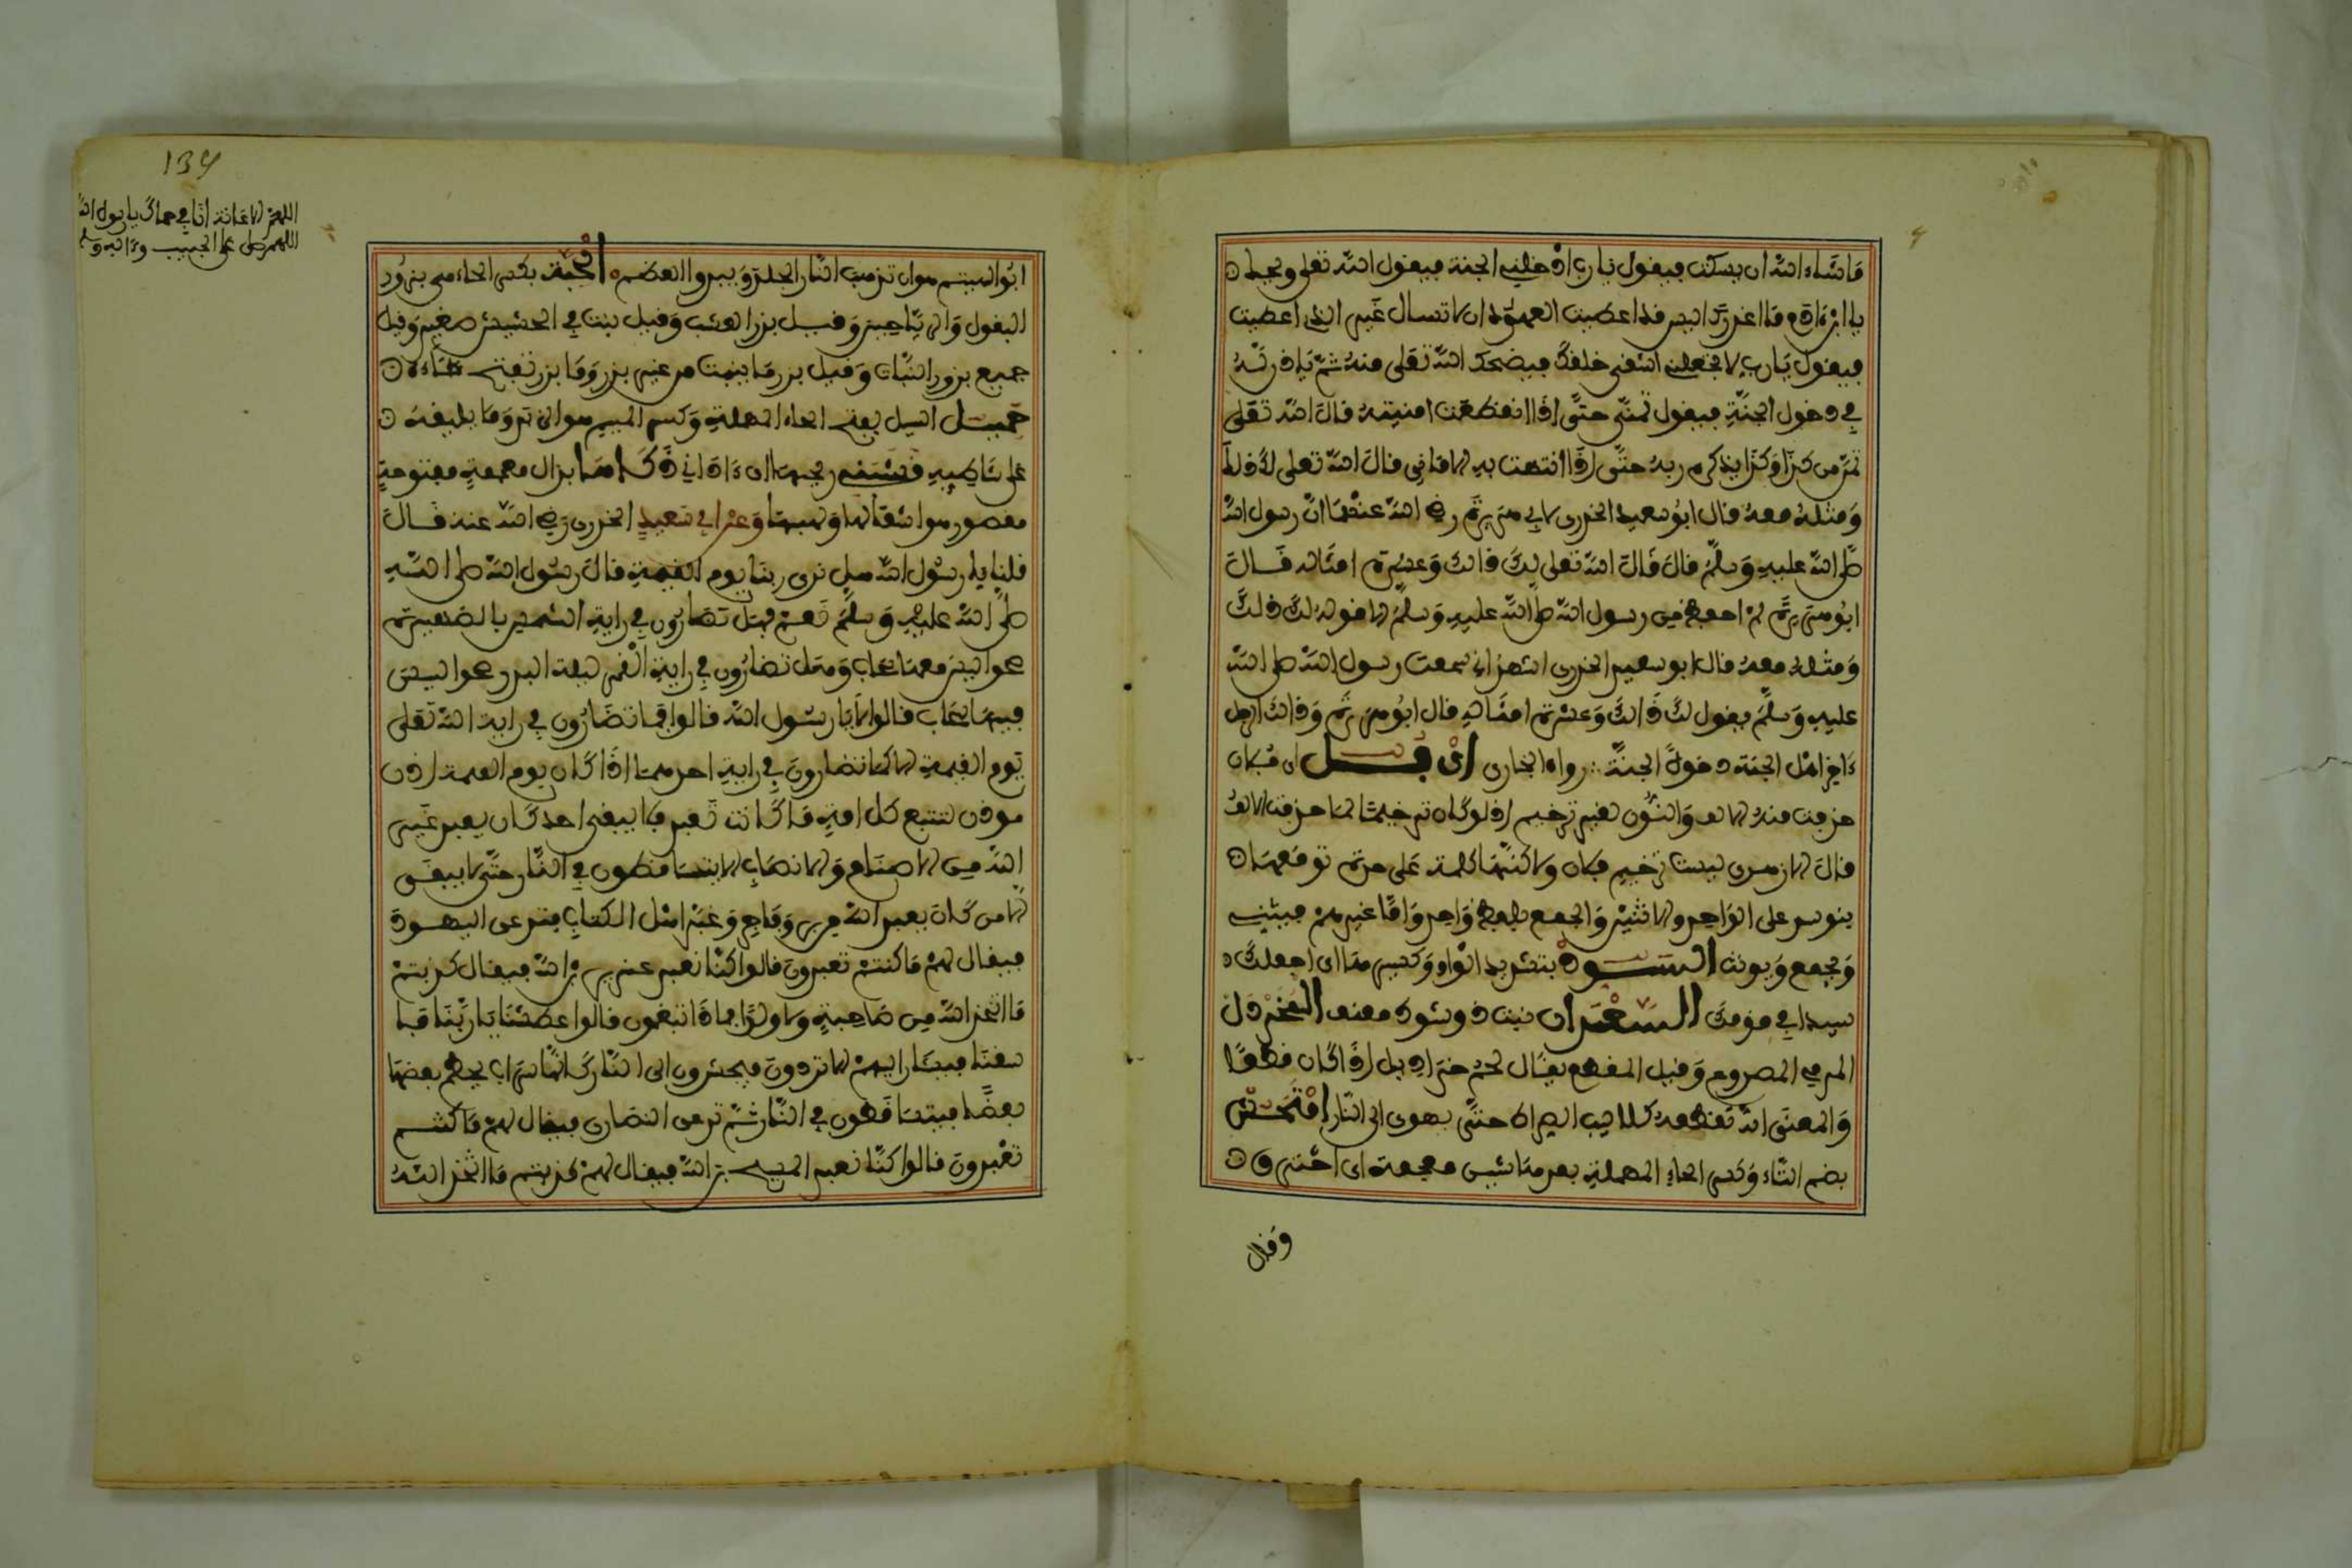 ما شاء الله ان يسكت فيقول يا رب ادخلني الجنة فيقول الله تعلى ويحك
يا ابن ءادم ما اغدرك اليس قد اعطيت العهود ان لا تسال غير الذي اعطيت
فيقول يا رب لا تجعلني اشقى خلقك فيضحك الله تعلى منه ثم ياذن له
في دخول الجنة فيقول تمن فيتمنى حتى اذا انقطعت امنيته قال الله تعلى
تمن من كذا وكذا يذكره ربه حتى اذا انتهت به الاماني قال الله تعلى لك ذلك
ومثله معه قال ابو سعيد الخدري لابي هريرة رضي الله عنهما ان رسول الله
صلى الله عليه وسلم قال قال الله تعلى لك ذالك وعشرة امثاله قال
ابو هريرة لم احفظ من رسول الله صلى الله عليه وسلم الا قوله لك ذلك
ومثله معه قال ابو سعيد الخدري اشهد اني سمعت رسول الله صلى الله
عليه وسلم يقول لك ذالك وعشرة امثاله قال ابو هريرة وذالك الرجل
ءاخر اهل الجنة دخولا الجنة رواه البخاري اي فل اي فلان
حذفت منه الالف والنون لغير ترخيم اذ لو كان ترخيما لما حذفت الالف
قال الازهري ليست ترخيم فلان ولاكنها كلمة على حدة توقعها
بنو اسد على الواحد والاثنين والجمع بلفظ واحد واما غيرهم فيثني
ويجمع ويونث اسودك بتشديد الواو وكسرها اي اجعلك
سيدا في قومك السعدان نبت ذو شوك معقف المخردل
المرمي المصروع وقيل المقطع يقال لحم خراديل اذا كان قطعا
والمعنى انه تقطعه كلاليب الصراط حتى يهوي الى النار امتحش
بضم التاء وكسر الحاء المهملة بعدها شين معجمة اي احترق
وقال
139
اللهم صل على الحبيب وءاله وسلم
ابو الهيثم هو ان تذهب النار الجلد ويبدو العظم الحبة بكسر الحاء هي بزور
البقول والرياحين وقيل بزر العشب وقيل نبت في الحشيش صغير وقيل
جميع بزور النبات وقيل بزر ما ينبت من غير بزر وما بزر تفتح حاءه
حميل السيل بفتح الحاء المهملة وكسر الميم هو الزبد وما يلقيه
على شاطيه قشبني ريحها اي ءاذاني ذكاها بذال معجمة مفتوحة
مقصور هو اشتعالها ولهبها وعن ابي سعيد الخدري رضي الله عنه قال
قلنا يا رسول الله هل نرى ربنا يوم القيمة قال رسول الله صلى الله
صلى الله عليه وسلم نعم فهل تضارون في راية الشمس بالظهيرة
صحوا ليس معها سحاب وهل تضارون في راية القمر ليلة البدر صحوا ليس
فيها سحاب قالوا لا يا رسول الله قالوا فما تضارون في راية الله تعلى
يوم القيمة الا كما تضارون في راية احدهما اذا كان يوم القيمة اذن
موذن لتتبع كل امة ما كانت تعبد فلا يبقى احد كان يعبد غير
الله من الاصنام والانصاب الا يتساقطون في النار حتى لا يبقى
الا من كان يعبد الله من بر وفاجر وغبر اهل الكتاب فتدعى اليهود
فيقال لهم ما كنتم تعبدون قالوا كنا نعبد عزير بن الله فيقال كذبتم
ما اتخذ الله من صاحبة ولا ولد فماذا تبغون قالوا عطشنا يا ربنا فا
سقنا فيشار اليهم الا تردون فيحشرون الى النار كانها سراب يحطم بعضها
بعضا فيتساقطون في النار ثم تدعى النصارى فيقال لهم ما كنتم
تعبدون قالوا كنا نعبد المسيح بن الله فيقال لهم كذبتم ما اتخذ الله